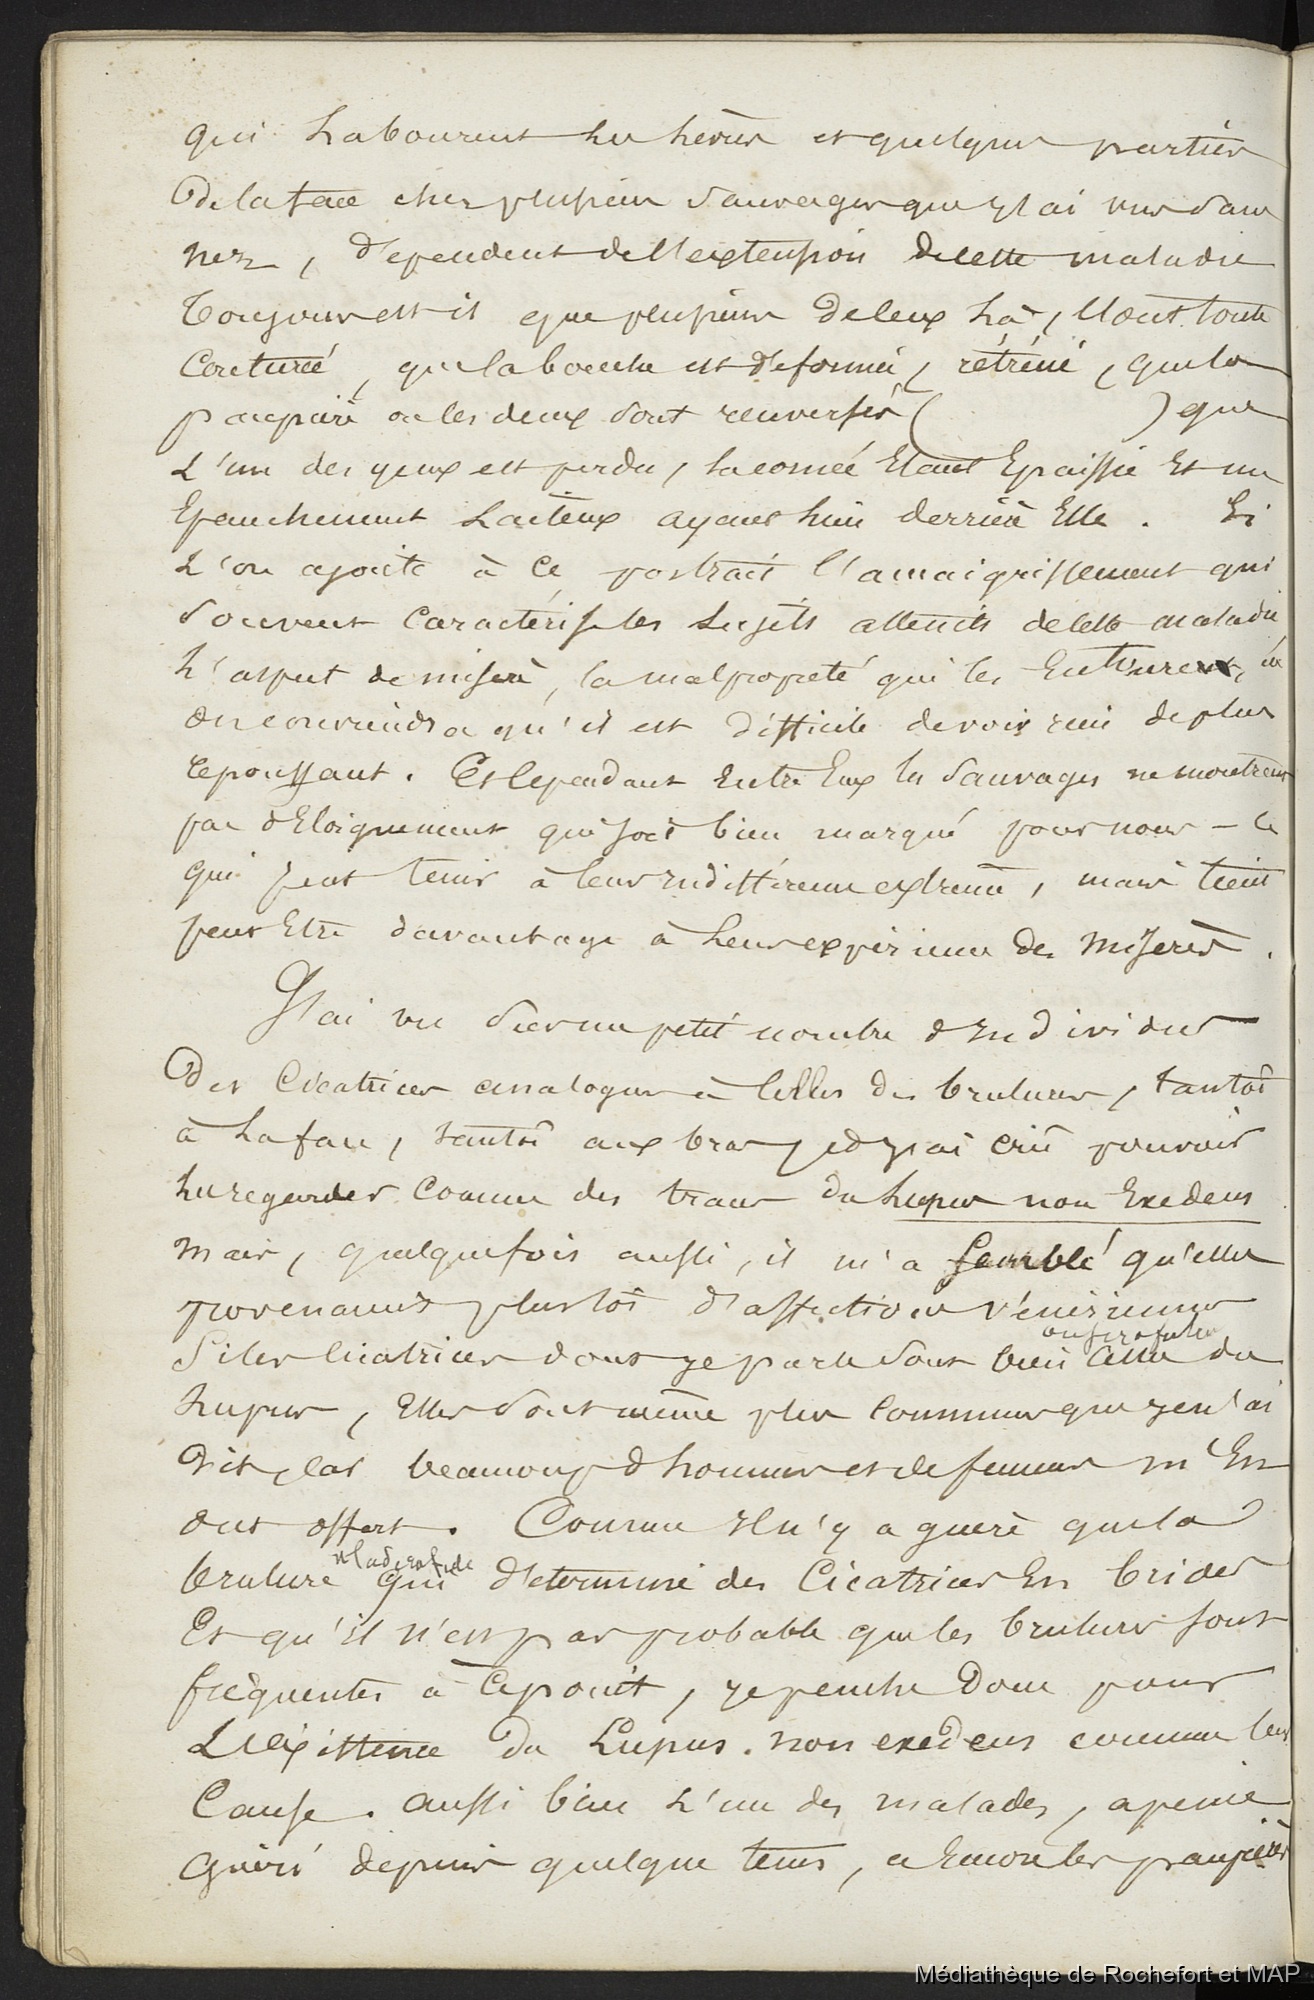 qui labourent les lèvres et quelques parties
de la face chez plusieurs sauvages que j'ai vus sans
nez, dépendent de l'extension de cette maladie
Toujours est-il que plusieurs de ceux là, l'ont toute
couturée, que la bouche est déformée, rétrécie, que la
paupière ou les deux sont renversées (            ) que
l'un des yeux est perdu, la cornée étant épaissie et un
épanchement laiteux ayant lieu derrière elle. Si
l'on ajoute à ce portrait l'amaigrissement qui
souvent caractérise les sujets atteints de cette maladie
l'aspect de misère, la malpropreté qui les entourent,
on conviendra qu'il est difficile de voir rien de plus
repoussant. Et cependant entre eux les sauvages ne montrent
pas d'éloignement qui soit bien marqué pour nous - ce
qui peut tenir à leur indifférence extrême, mais tient
peut être davantage à leur expérience des misères.
J'ai vu sur un petit nombre d'individus
des cicatrices analogues à celles des brulures, tantôt
à la face, tantôt aux bras, et j'ai crû pouvoir
les regarder comme des traces du lupus non exedens
mais, quelquefois aussi, il m'a semblé qu'elles
provenaient plustôt d'affections vénériennes
ou scrofules
Si les cicatrices dont je parle sont bien celles du
lupus, elles sont même plus communes que je n'ai
dit, car beaucoup d'hommes et de femmes m'en
ont offert. Comme il n'y a guère que la
et la scrofule
brulure qui détermine des cicatrices en brides
et qu'il n'est pas probable que les brulures sont
fréquentes à ce point, je penche donc pour
l'existence du Lupus non exedens comme leur
cause. aussi bien l'un des malades, a peine
guéri depuis quelque tems, a encore les paupières
Médiathèque de Rochefort et MAP